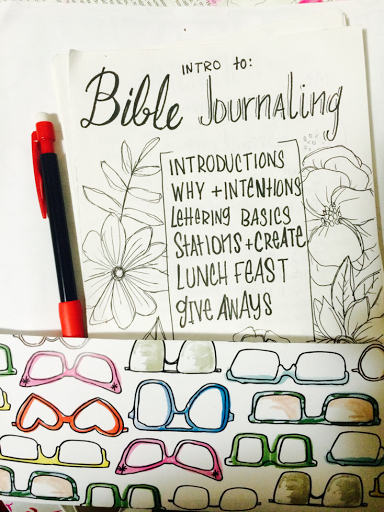 INTRO to:
Bible Journaling
INTRODUCTIONS
WHY + INTENTIONS
LETTERING BASICS
STATIONS + CREATE
LUNCH FEAST
GIVE AWAYS